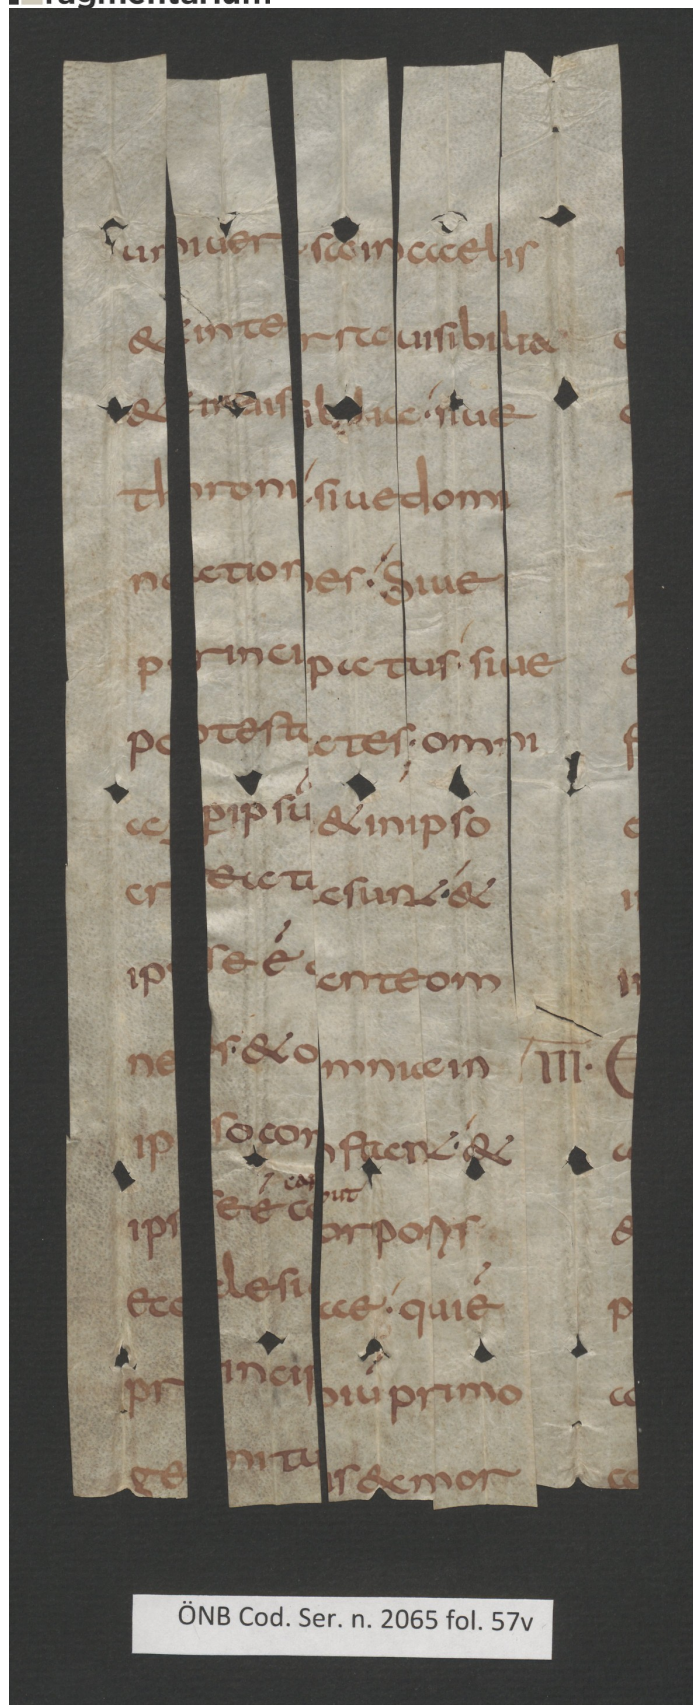 uniuersa in caelis
& in terra uisibilia
& inuisibilia · siue
throni · siue domi
nationes · Siue
principatus · siue
potestates · omni
a p ipsū & in ipso
creata sun& · &
ipse ē ante om
nes · & omnia in
III · E
ipso constan& · &
caput
ipse ē corporis
ecclesiae · qui ē
principiū primo
genitus & mor
ÖNB Cod. Ser. n. 2065 fol. 57v